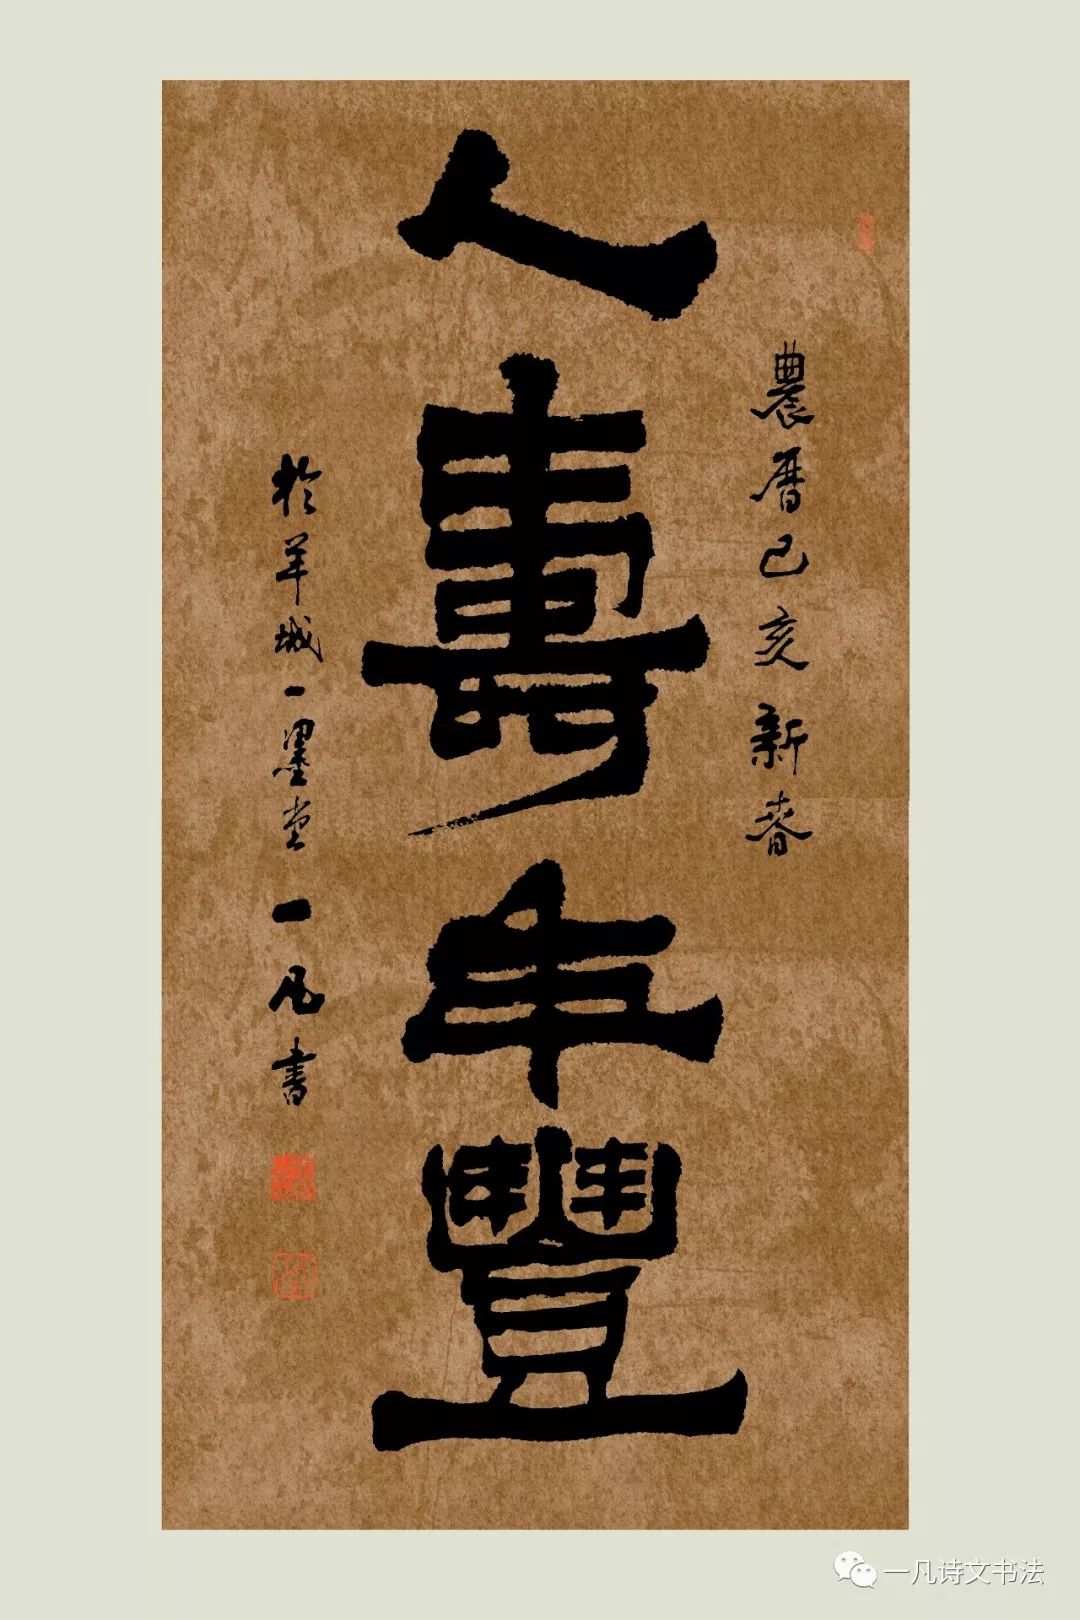 農曆己亥新春
人壽年豐
於羊城一墨堂一凡書
一凡诗文书法